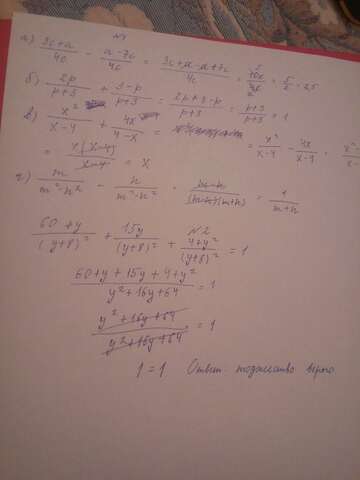 №1
а) (3c+a)/4c - (a-7c)/4c = (3c+a-a+7c)/4c = 10c/4c = 5/2 = 2,5
б) 2p/(p+3) + (3-p)/(p+3) = (2p+3-p)/(p+3) = (p+3)/(p+3) = 1
в) x²/(x-4) + 4x/(4-x) = x²/(x-4) - 4x/(x-4) =
= x(x-4)/(x-4) = x
г) m/(m²-n²) - n/(m²-n²) = (m-n)/((m-n)(m+n)) = 1/(m+n)
№2
(60+y)/(y+8)² + 15y/(y+8)² + (4+y²)/(y+8)² = 1
(60+y+15y+4+y²)/(y²+16y+64) = 1
(y²+16y+64)/(y²+16y+64) = 1
1 = 1 Ответ: тождество верно.